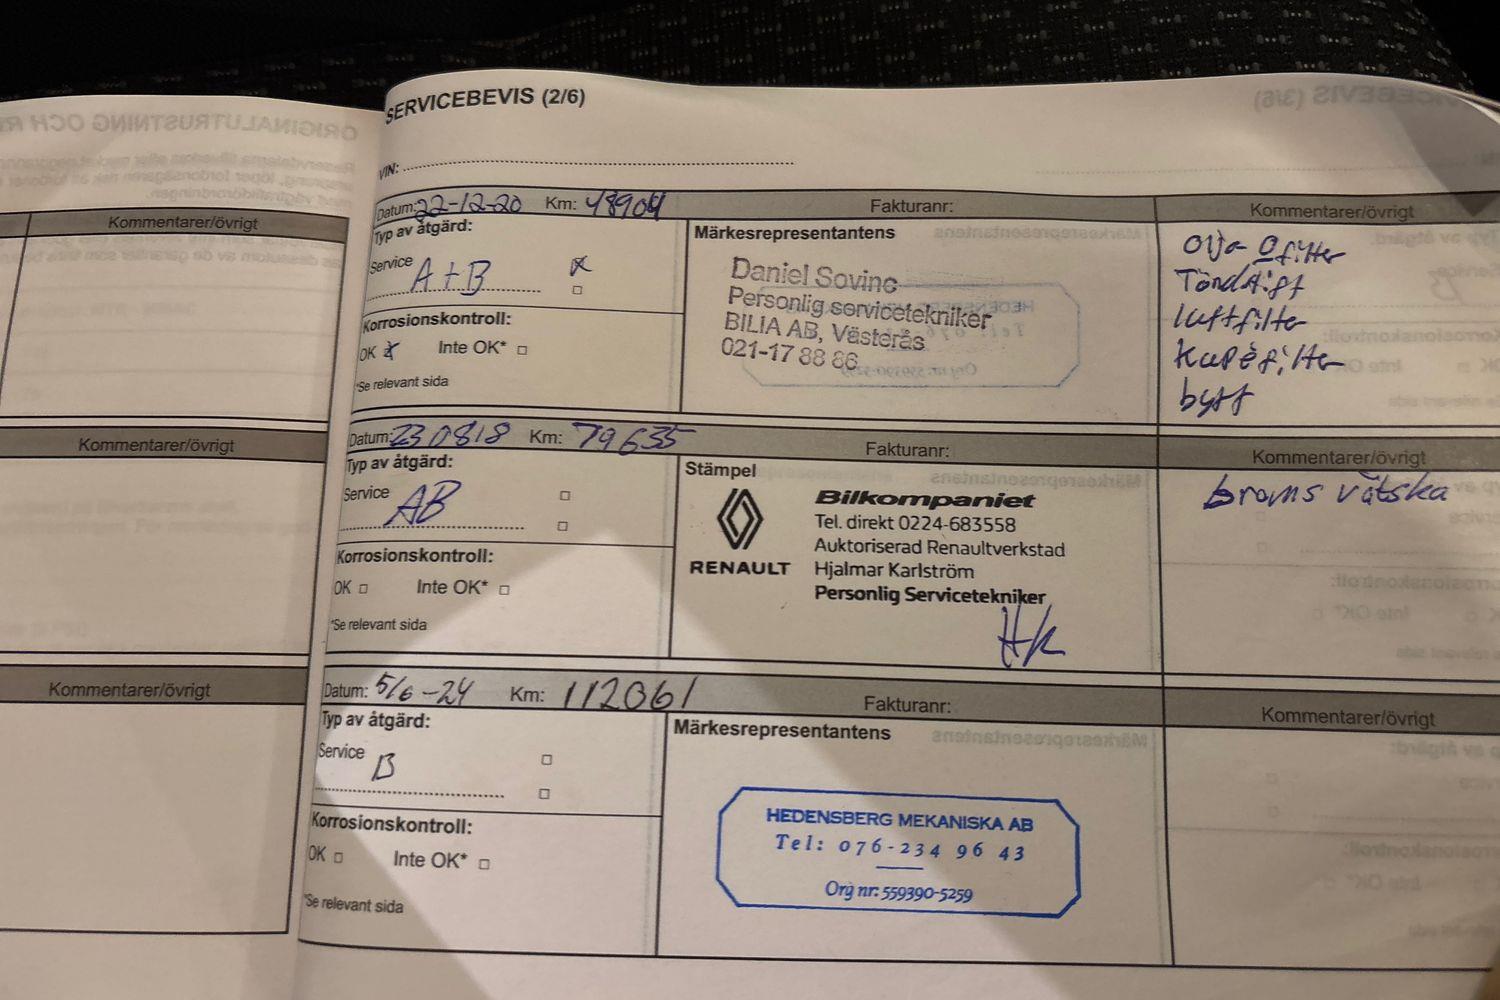 SERVICEBEVIS (2/6)
VIN:
Kommentarer/övrigt
Datum: 22-12-20 Km: 48904 Fakturanr: Kommentarer/övrigt
Typ av åtgärd:
Service A+B
Korrosionskontroll:
OK Inte OK*
*Se relevant sida
Märkesrepresentantens
Daniel Sovinc
Personlig servicetekniker
BILIA AB, Västerås
021-17 88 86
Olja Ofilter
Tändstift
Luftfilter
Kupéfilter
bytt
Kommentarer/övrigt
Datum: 230818 Km: 79635 Fakturanr: Kommentarer/övrigt
Typ av åtgärd:
Service AB
Korrosionskontroll:
OK Inte OK*
*Se relevant sida
Stämpel
RENAULT
Bilkompaniet
Tel. direkt 0224-683558
Auktoriserad Renaultverkstad
Hjalmar Karlström
Personlig Servicetekniker
HK
broms vätska
Kommentarer/övrigt
Datum: 5/6-24 Km: 112061 Fakturanr: Kommentarer/övrigt
Typ av åtgärd:
Service B
Korrosionskontroll:
OK Inte OK*
*Se relevant sida
Märkesrepresentantens
HEDENSBERG MEKANISKA AB
Tel: 076-234 96 43
Org nr: 559390-5259